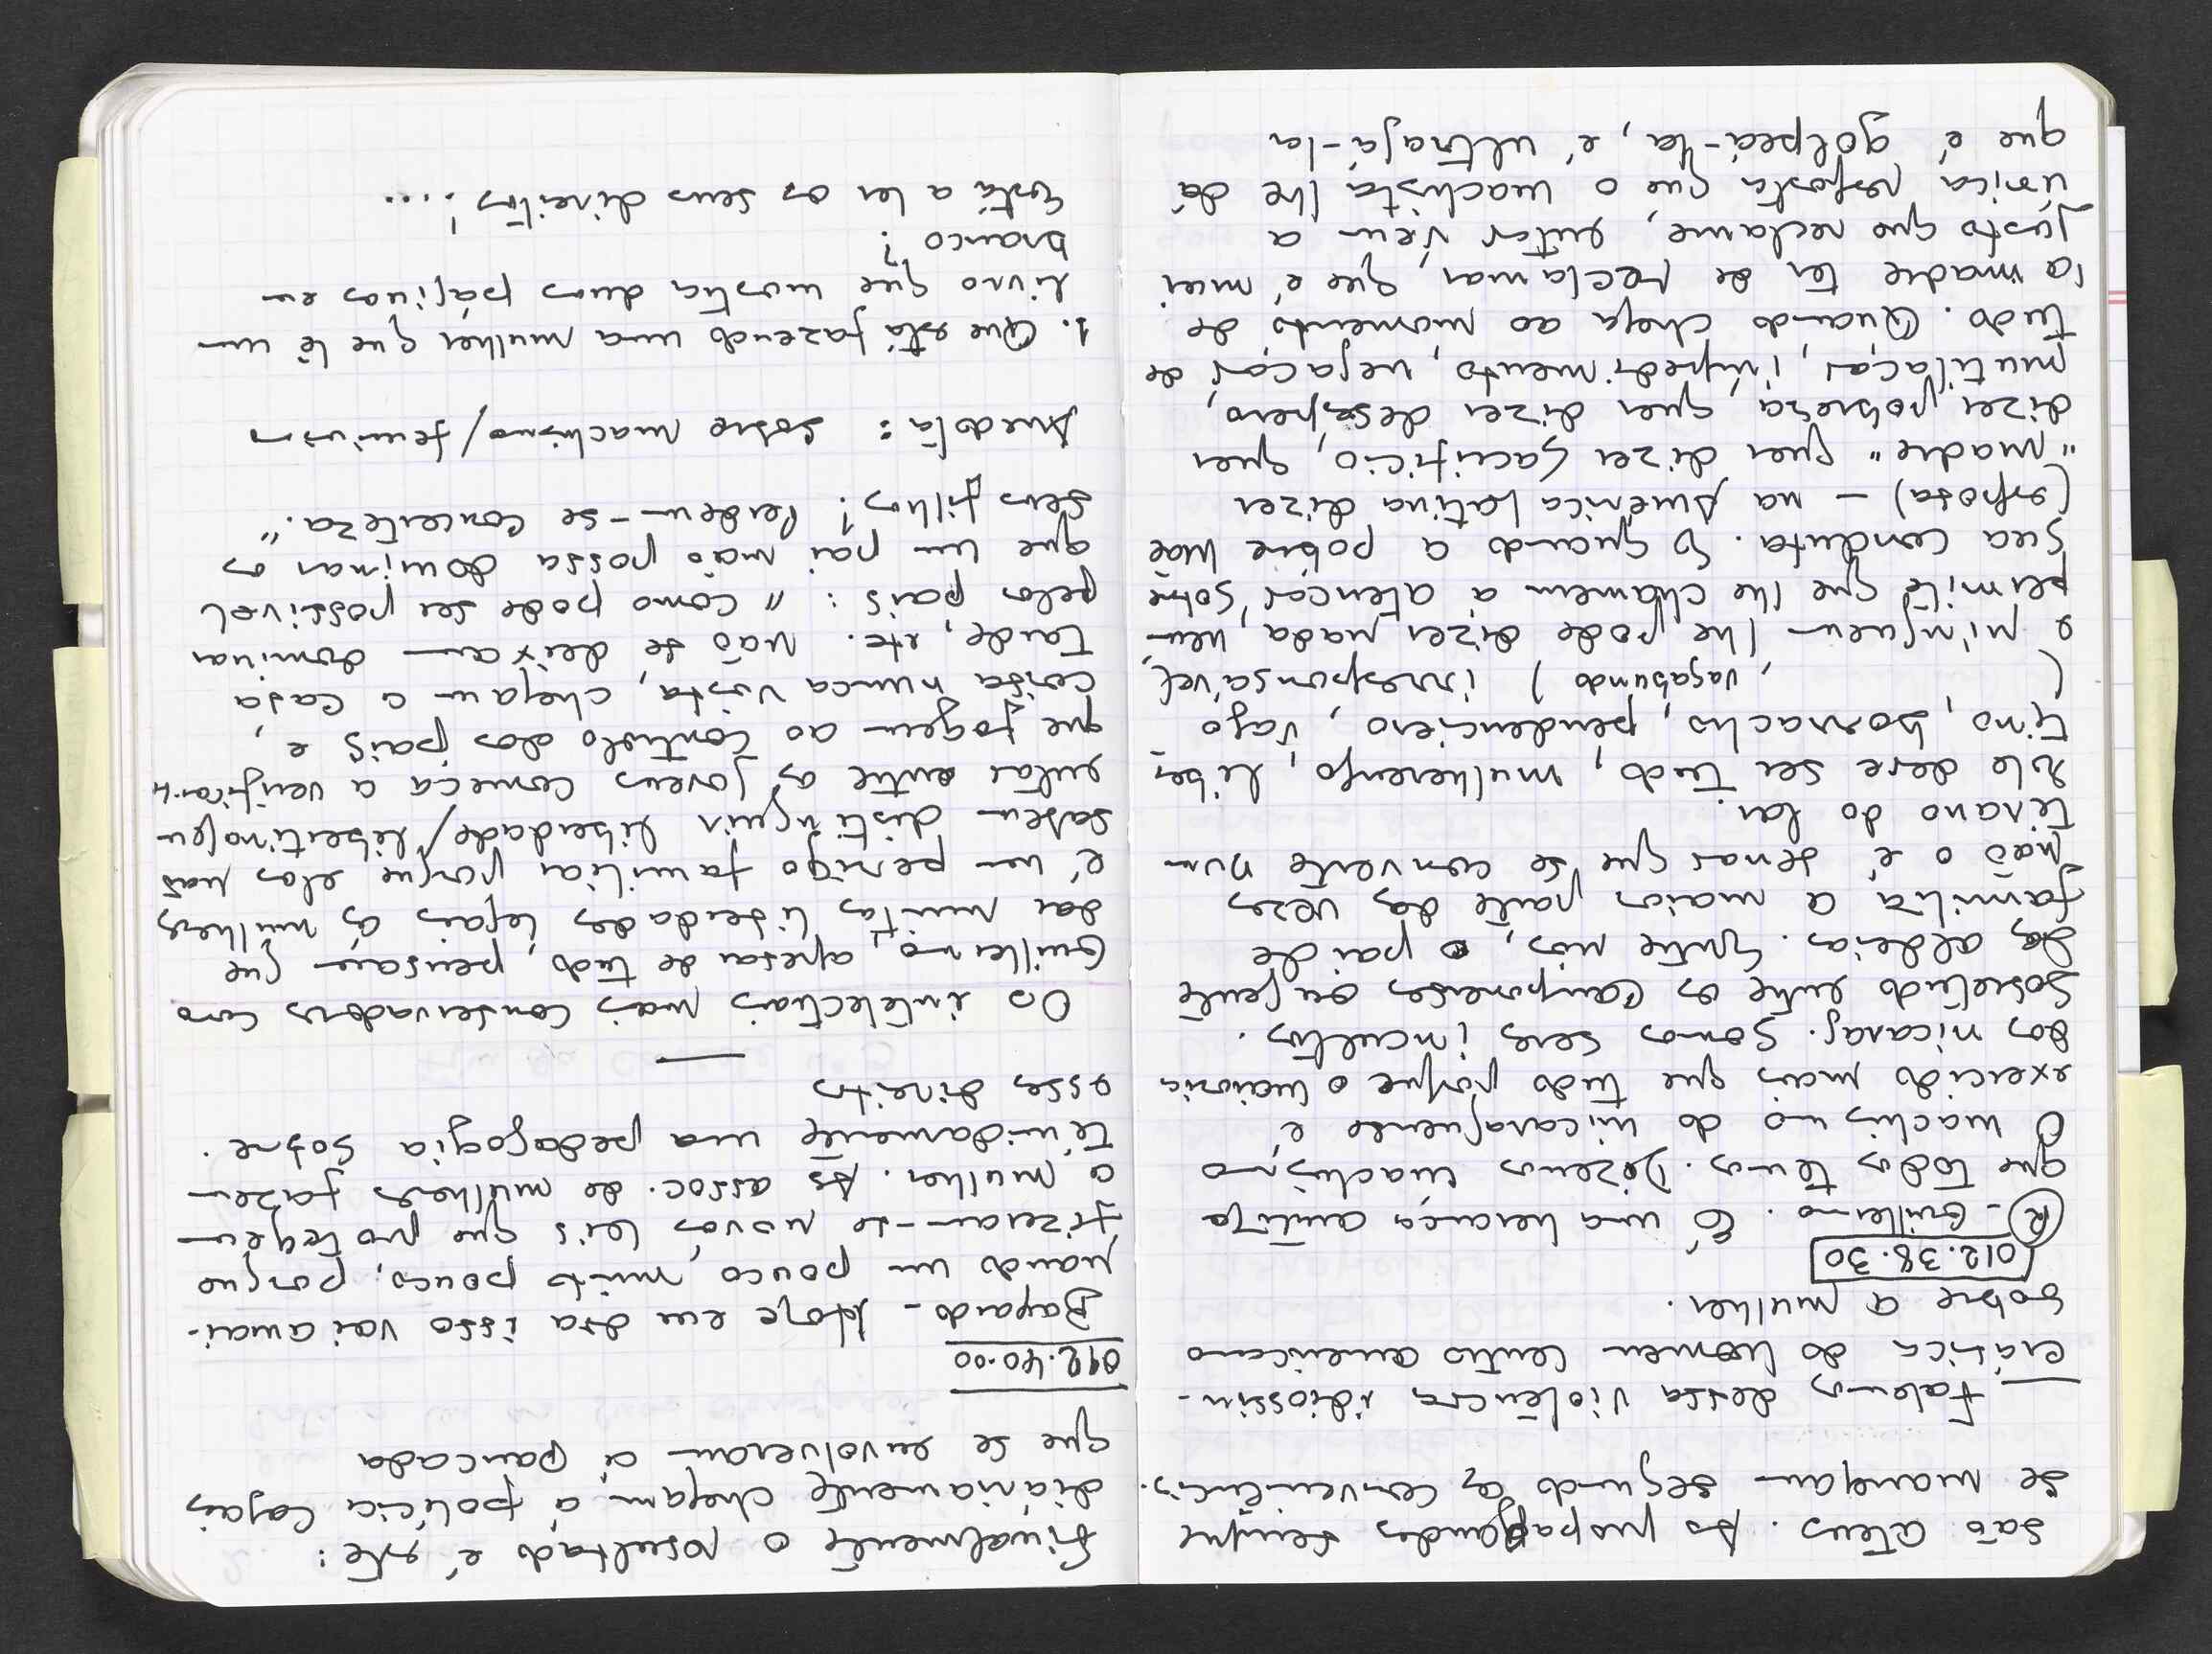 são ateus. As propagandas sempre
se manejam segundo as conveniências.
— Falemos dessa violência idiossin-
crática do homem centro americano
sobre a mulher.
012.38.30
R - Guillermo. É uma herança antiga
que todos temos. Dizemos machismo
O machismo do nicaraguense é
exercido mais que tudo porque a maioria
dos nicarag. Somos seres incultos.
Sobretudo entre os camponeses ou gente
das aldeias. Entre nós, o pai de
família a maior parte das vezes
não o é senão que se converte num
tirano do lar.
Ele deve ser tudo, mulherengo, liber
tino, borracho, pendenciero, vago
( , vagabundo) irresponsável
e ninguem lhe pode dizer nada, nem
permite que lhe chamem a atenção sobre
sua conduta. E quando a pobre mãe
(esposa) – na América Latina dizer
"madre" quer dizer sacrifício, quer
dizer pobreza, quer dizer desespero,
mutilação, impedimento, negação de
tudo. Quando chega ao momento de
a madre ter de reclamar, que é mui
justo que reclame, então vem a
única resposta que o machista lhe dá
que é golpeá-la, é ultrajá-la
Finalmente o resultado é este:
diáriamente chegam á polícia casais
que se envolveram á pancada
012.40.00
Bayardo - Hoje em dia isso vai amai-
nando um pouco, muito pouco, porque
fizeram-se novas leis que protegem
a mulher. As assoc. de mulheres fazem
temidamente uma pedagogia sobre.
esses direitos
—
Os intelectuais mais conservadores como
Guillermo, apesar de tudo, pensam que
dar muitas liberdades legais ás mulheres
é um perigo familiar porque elas não
sabem distinguir liberdade/libertinagem
então entre os jovens começa a verificar-se
que fogem ao controlo dos pais e,
coisa nunca vista, chegam a casa
tarde, etc. Não se deixam dominar
pelos pais: "como pode ser possível
que um pai não possa dominar os
seus filhos? Perdem-se concerteza."
Anedota: sobre machismo/feminism
1. Que está fazendo uma mulher que lê um
livro que mostra duas páginas em
branco?
Está a ler os seus direitos!...